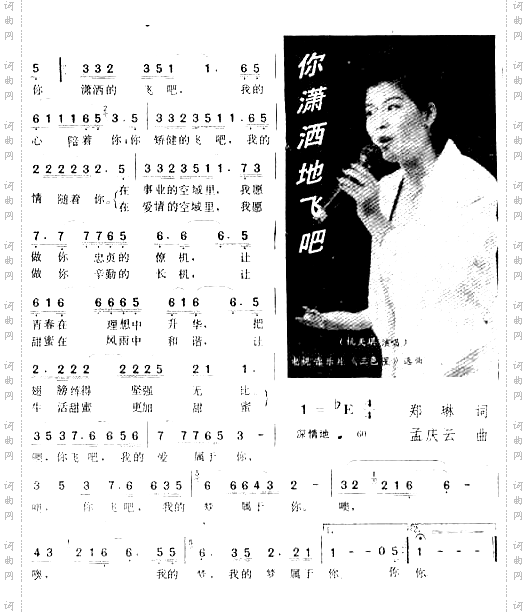 你潇洒地飞吧
(杭天琪演唱)
电视音乐片《三色星》选曲
1 = ♭E 4/4
郑琳 词
深情地 60
孟庆云 曲
5 332 351 1. 65
你 潇洒的 飞吧, 我的
6111653.5 3323511.65
心 陪着你,你 矫健的飞吧,我的
2222232.5 3323511.73
情 随着你。 在 事业的空域里,我愿
在 爱情的空域里,我愿
7.7 7765 6.6 6.5
做你 忠贞的 僚机, 让
做你 辛勤的 长机, 让
616 6665 616 6.5
青春在 理想中 升华, 把
甜蜜在 风雨中 和谐, 让
2.222 2225 21 1.
翅膀练得 坚强 无比
生活甜蜜 更加 甜蜜
3537.6 656 7 765 3 -
噢,你飞吧,我的 爱 属于 你,
3 5 3 7.6 635 6 6643 2 - 32 216 6 -
你飞吧, 我的 梦 属于 你。 噢,
43 216 6. 35 6. 35 2.21 1 - - 05 1 - - -
噢, 我的 梦,我的 梦 属于 你 你 你
词曲网
词曲网
词曲网
词曲网
词曲网
词曲网
词曲网
词曲网
词曲网
词曲网
词曲网
词曲网